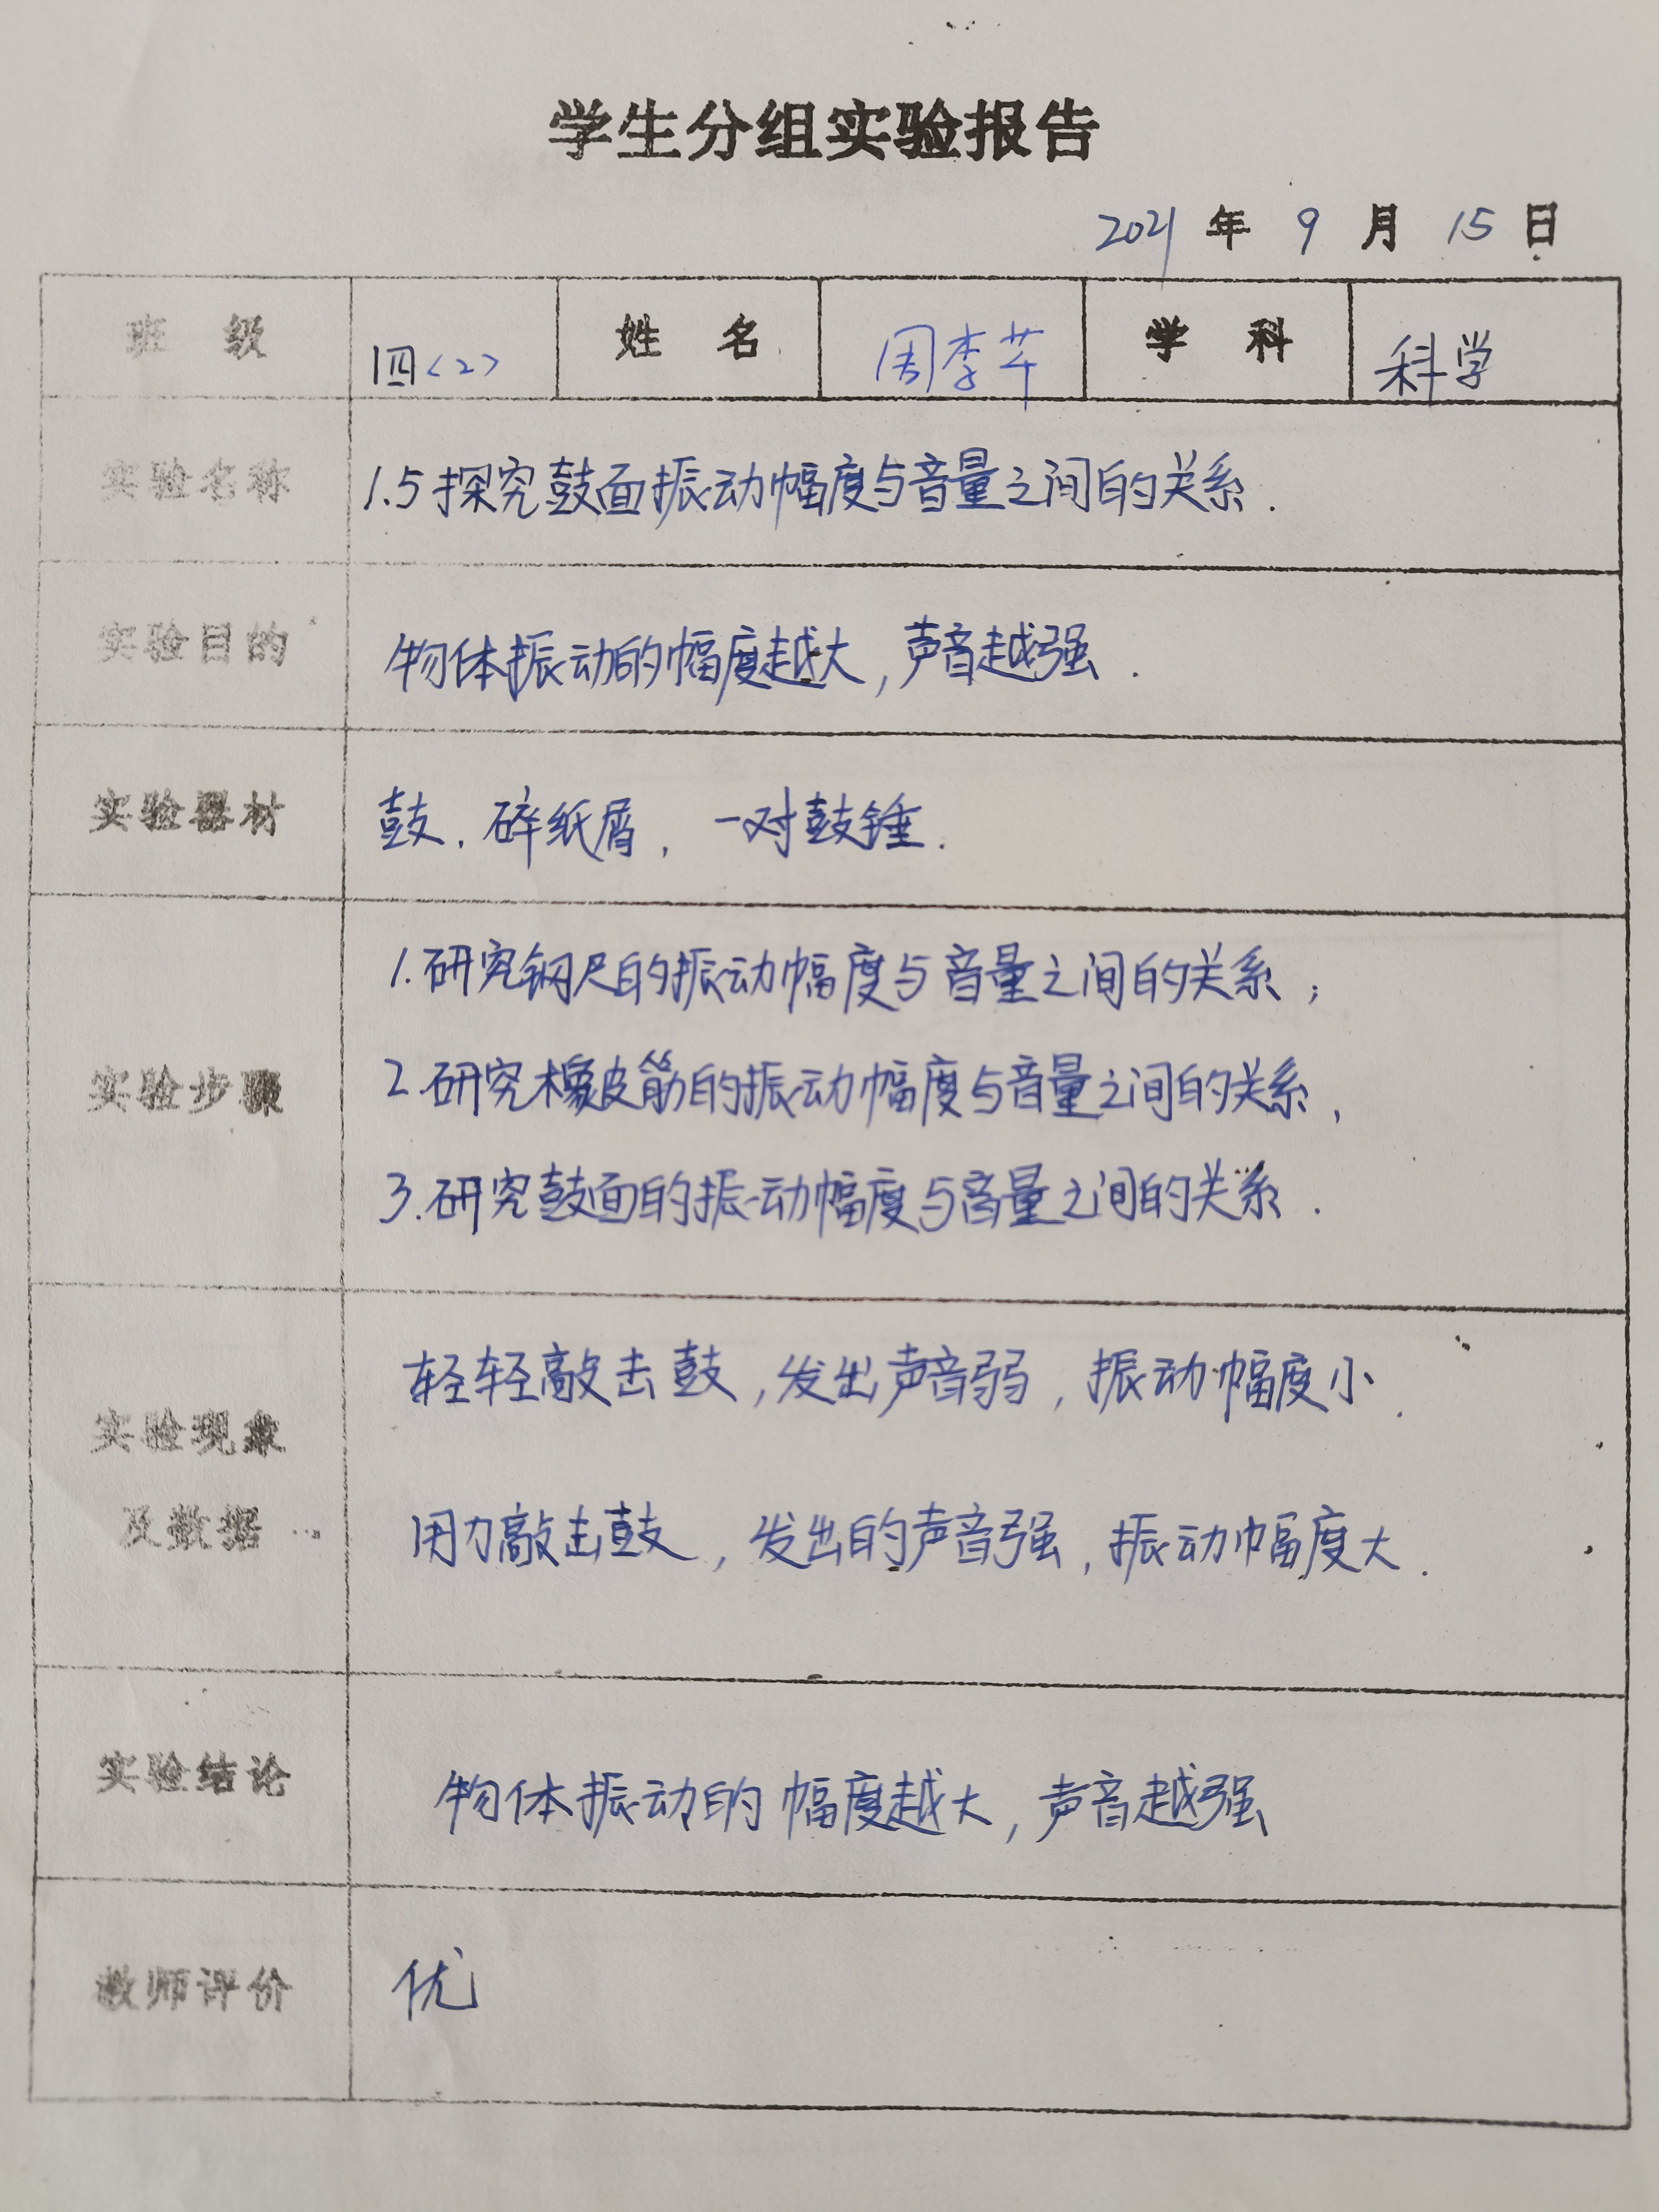 学生分组实验报告
2021 年 9 月 15 日
班 级 四<2> 姓 名 周李芊 学 科 科学
实验名称 1.5探究鼓面振动幅度与音量之间的关系.
实验目的 物体振动的幅度越大,声音越强.
实验器材 鼓.碎纸屑,一对鼓锤.
1.研究钢尺的振动幅度与音量之间的关系;
实验步骤 2.研究橡皮筋的振动幅度与音量之间的关系,
3.研究鼓面的振动幅度与音量之间的关系.
轻轻敲击鼓,发出声音弱,振动幅度小.
实验现象
及数据 用力敲击鼓,发出的声音强,振动幅度大.
实验结论 物体振动的幅度越大,声音越强
教师评价 优